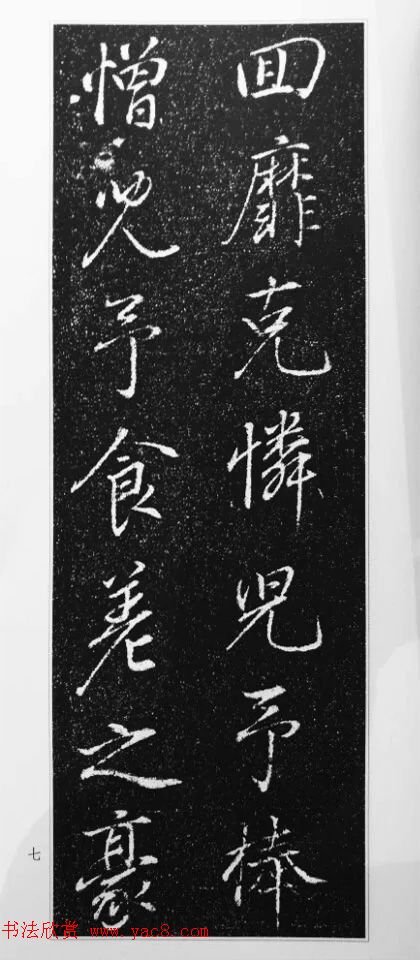 回靡克憐兒予棒
憎兒予食差之豪
七
书法欣赏 www.yac8.com